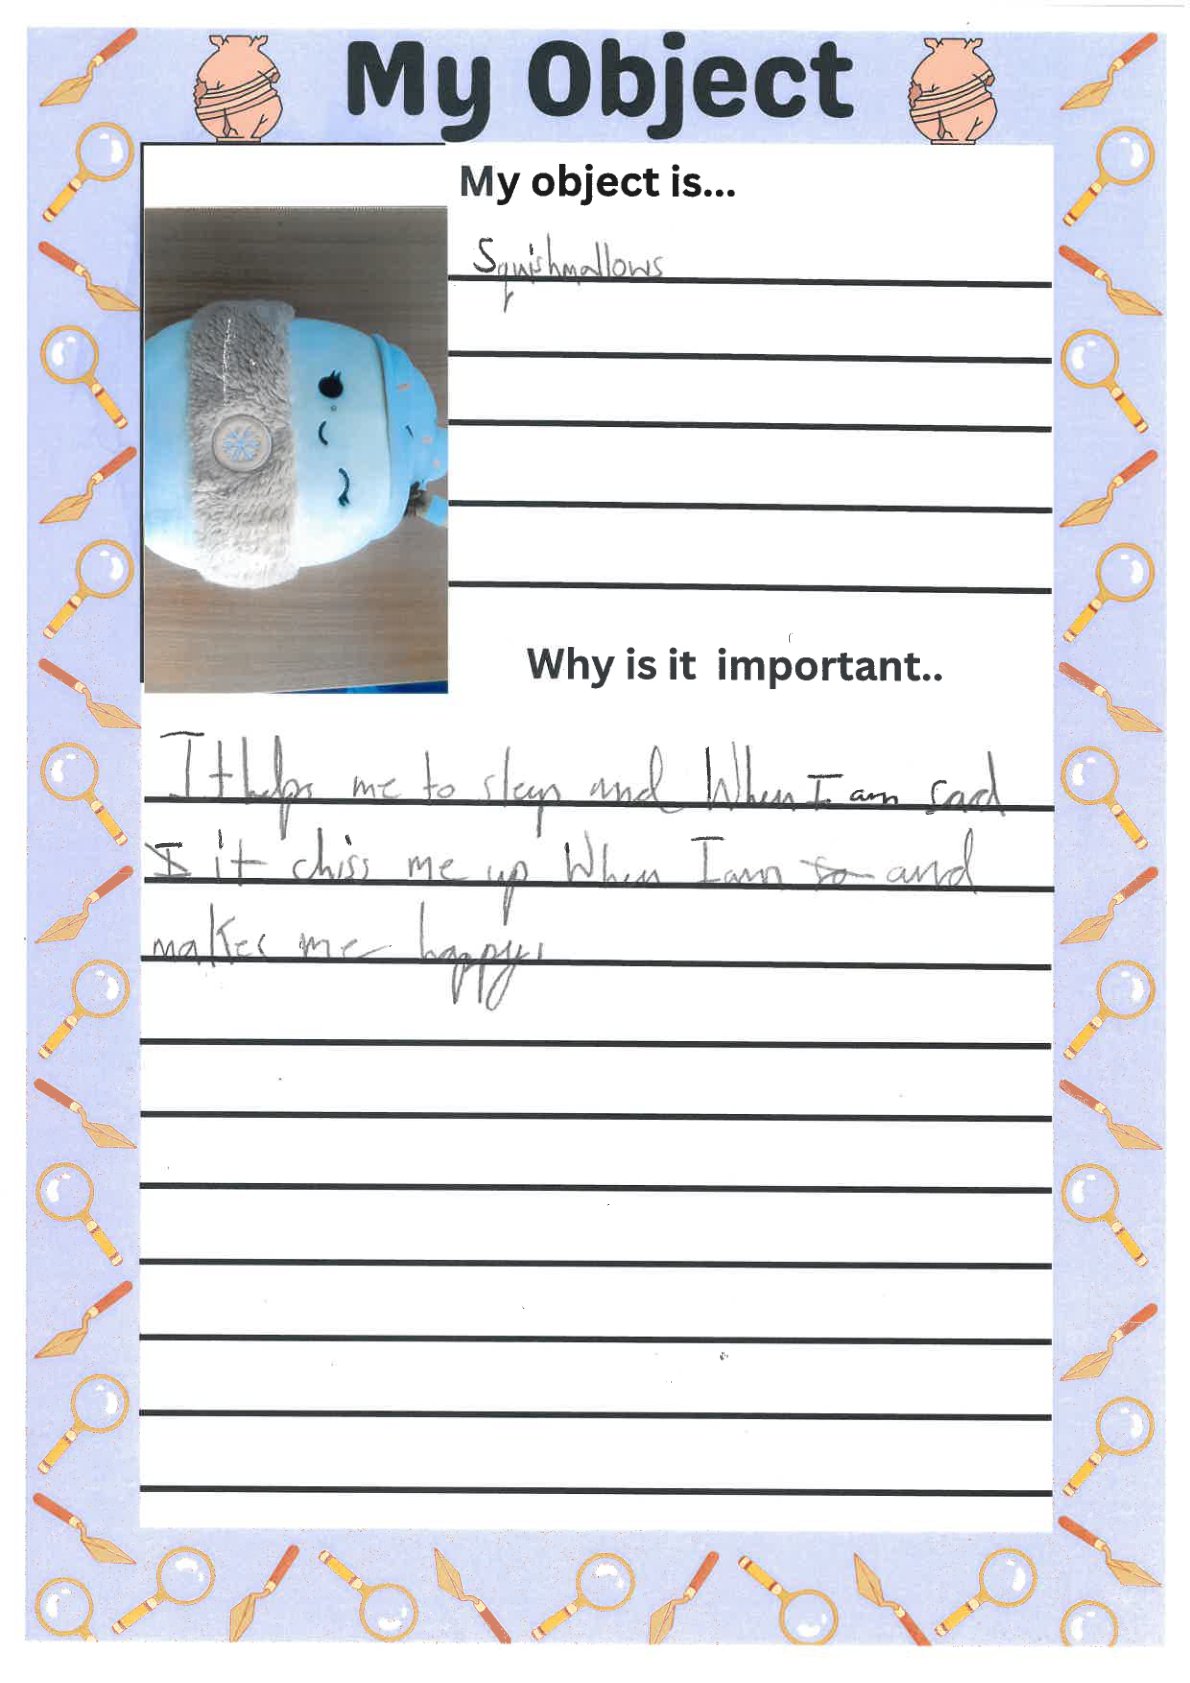 My Object
My object is...
Squishmallows
Why is it important..
It helps me to sleep and When I am sad
I it chiss me up When I am so and
makes me happy.